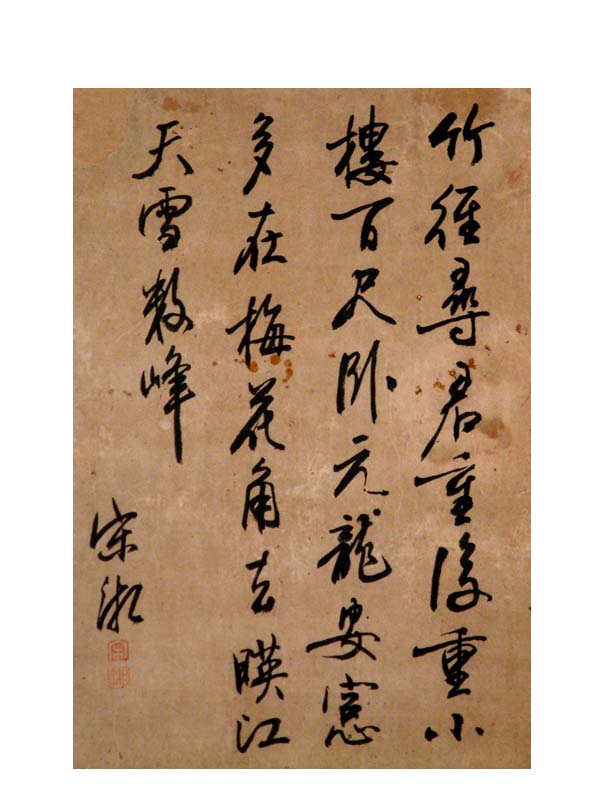 竹徑尋君重復重小
樓百尺卧元龍安窓
多在梅花角去暎江
天雪數峰
宋湘